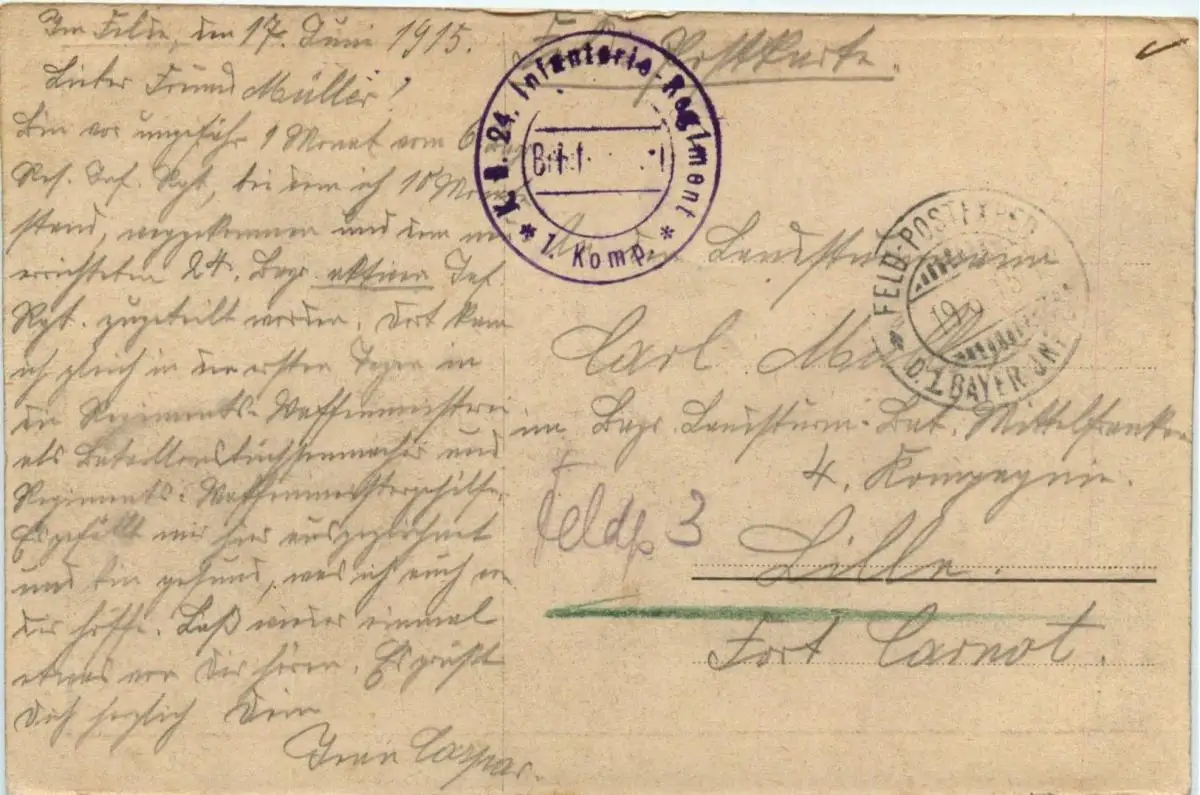 Im Felde, den 17. Juni 1915.
Lieber Freund Müller!
Bin vor ungefähr 1 Monat vom 6. Bayr.
Res. Inf. Rgt., bei dem ich 10 Monate
stand, weggekommen und dem neu
errichteten 24. Bayr. aktiven Inf.
Rgt. zugeteilt worden. Dort kam
ich gleich in den ersten Tagen in
die Regiments-Waffenmeisterei
als Bataillonsbüchsenmacher und
Regiments-Waffenmeistergehilfe.
Es gefällt mir hier ausgezeichnet
und bin gesund, was ich auch von
dir hoffe. Laß wieder einmal
etwas von Dir hören. Es grüßt
Dich herzlich Dein
Caspar.
Feldpostkarte.
K. B. 24. Infanterie-Regiment
* 1. Komp. *
FELD-POSTEXPED.
D. 1. BAYER. INF.
An den Landsturmmann
Carl Müller
im Bayr. Landsturm-Bat. Mittelfranken
4. Kompagnie.
Feldp 3
Lille.
Fort Carnot.